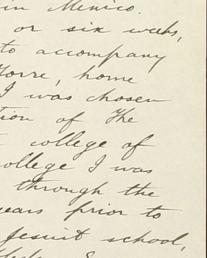 in Mexico.
or six weeks,
to accompany
Torre, home
I was chosen
tion of the
college of
ollege I was
through the
years prior to
Jesuit school,